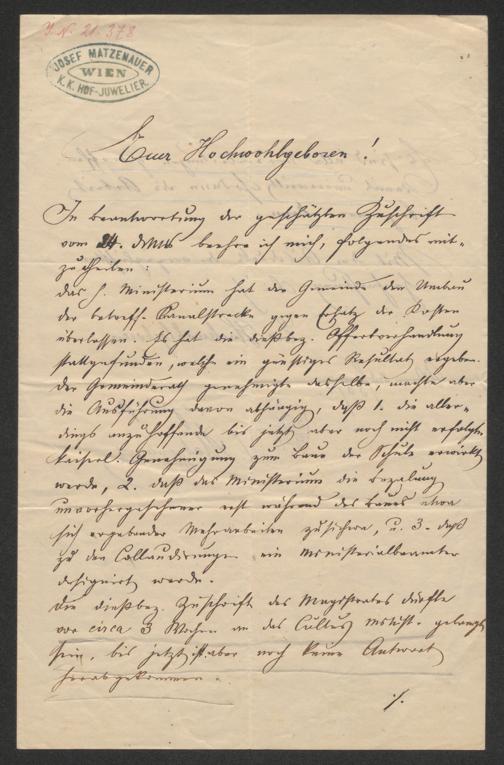 J. N. 21.378
JOSEF MATZENAUER
WIEN
K.K. HOF-JUWELIER.
Euer Hochwohlgeboren!
In Beantwortung der geschätzten Zuschrift
vom 24. beehre ich mich, folgendes mit-
zutheilen:
Das h. Ministerium hat der Gemeinde den Umbau
der betreff. Kanalstrecke gegen Ersatz der Kosten
überlassen. Es hat die dießbez. Offertverhandlung
stattgefunden, welche ein günstiges Resultat ergeben.
Der Gemeinderath genehmigte dasselbe, machte aber
die Ausführung davon abhängig, daß 1. die aller-
dings anzuhoffende bis jetzt aber noch nicht erfolgte
kaiserl. Genehmigung zum Baue der Schule erwirkt
werde, 2. daß das Ministerium die Bezalung
unvorhergesehener erst während des Baues etwa
sich ergebender Mehrarbeiten zusichere, u. 3. daß
zu den Collaudirungen ein Ministerialbeamter
designirt werde.
Die dießbez. Zuschrift des Magistrates dürfte
vor circa 3 Wochen an das Cultus minist. gelangt
sein, bis jetzt ist aber noch keine Antwort
herabgekommen.
./.